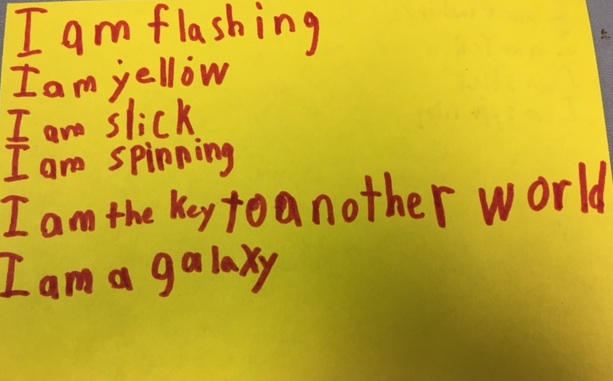 I am flashing
I am yellow
I am slick
I am spinning
I am the key to another world
I am a galaxy